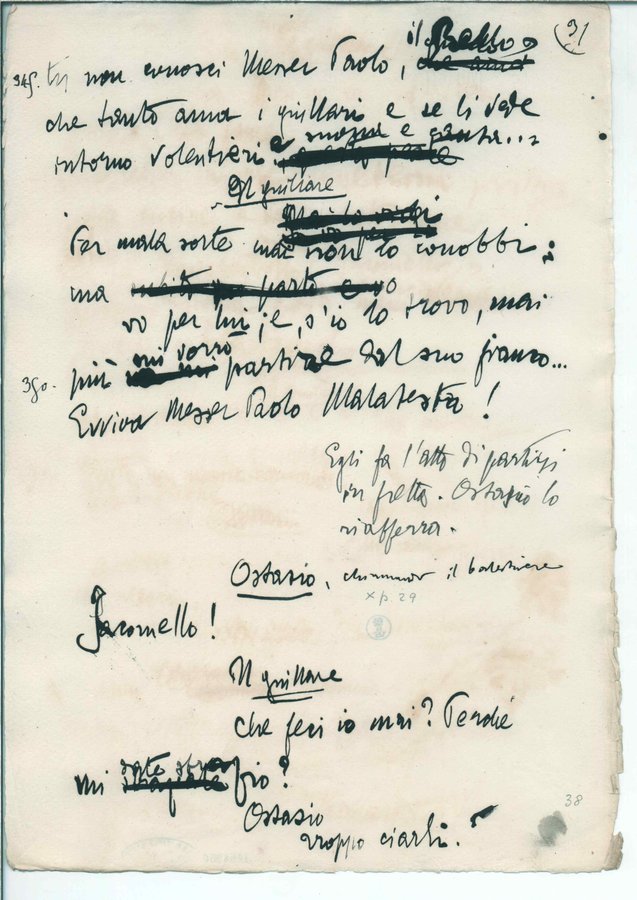 31
il Bello,
345. tu non conosci Messer Paolo,
che tanto ama i giullari e se li vede
suona e canta...
intorno volentieri e
Il giullare
Per mala sorte mai non lo conobbi;
ma
vo per lui; e, s'io lo trovo, mai
mi vorrò
350. più partire dal suo fianco...
Evviva Messer Paolo Malatesta!
Egli fa l'atto di partirsi
in fretta. Ostasio lo
riafferra.
Ostasio, chiamando il balestriere
x p. 29
Jacomello!
Il giullare
Che feci io mai? Perché
mi fio?
Ostasio
Troppo ciarli.
38